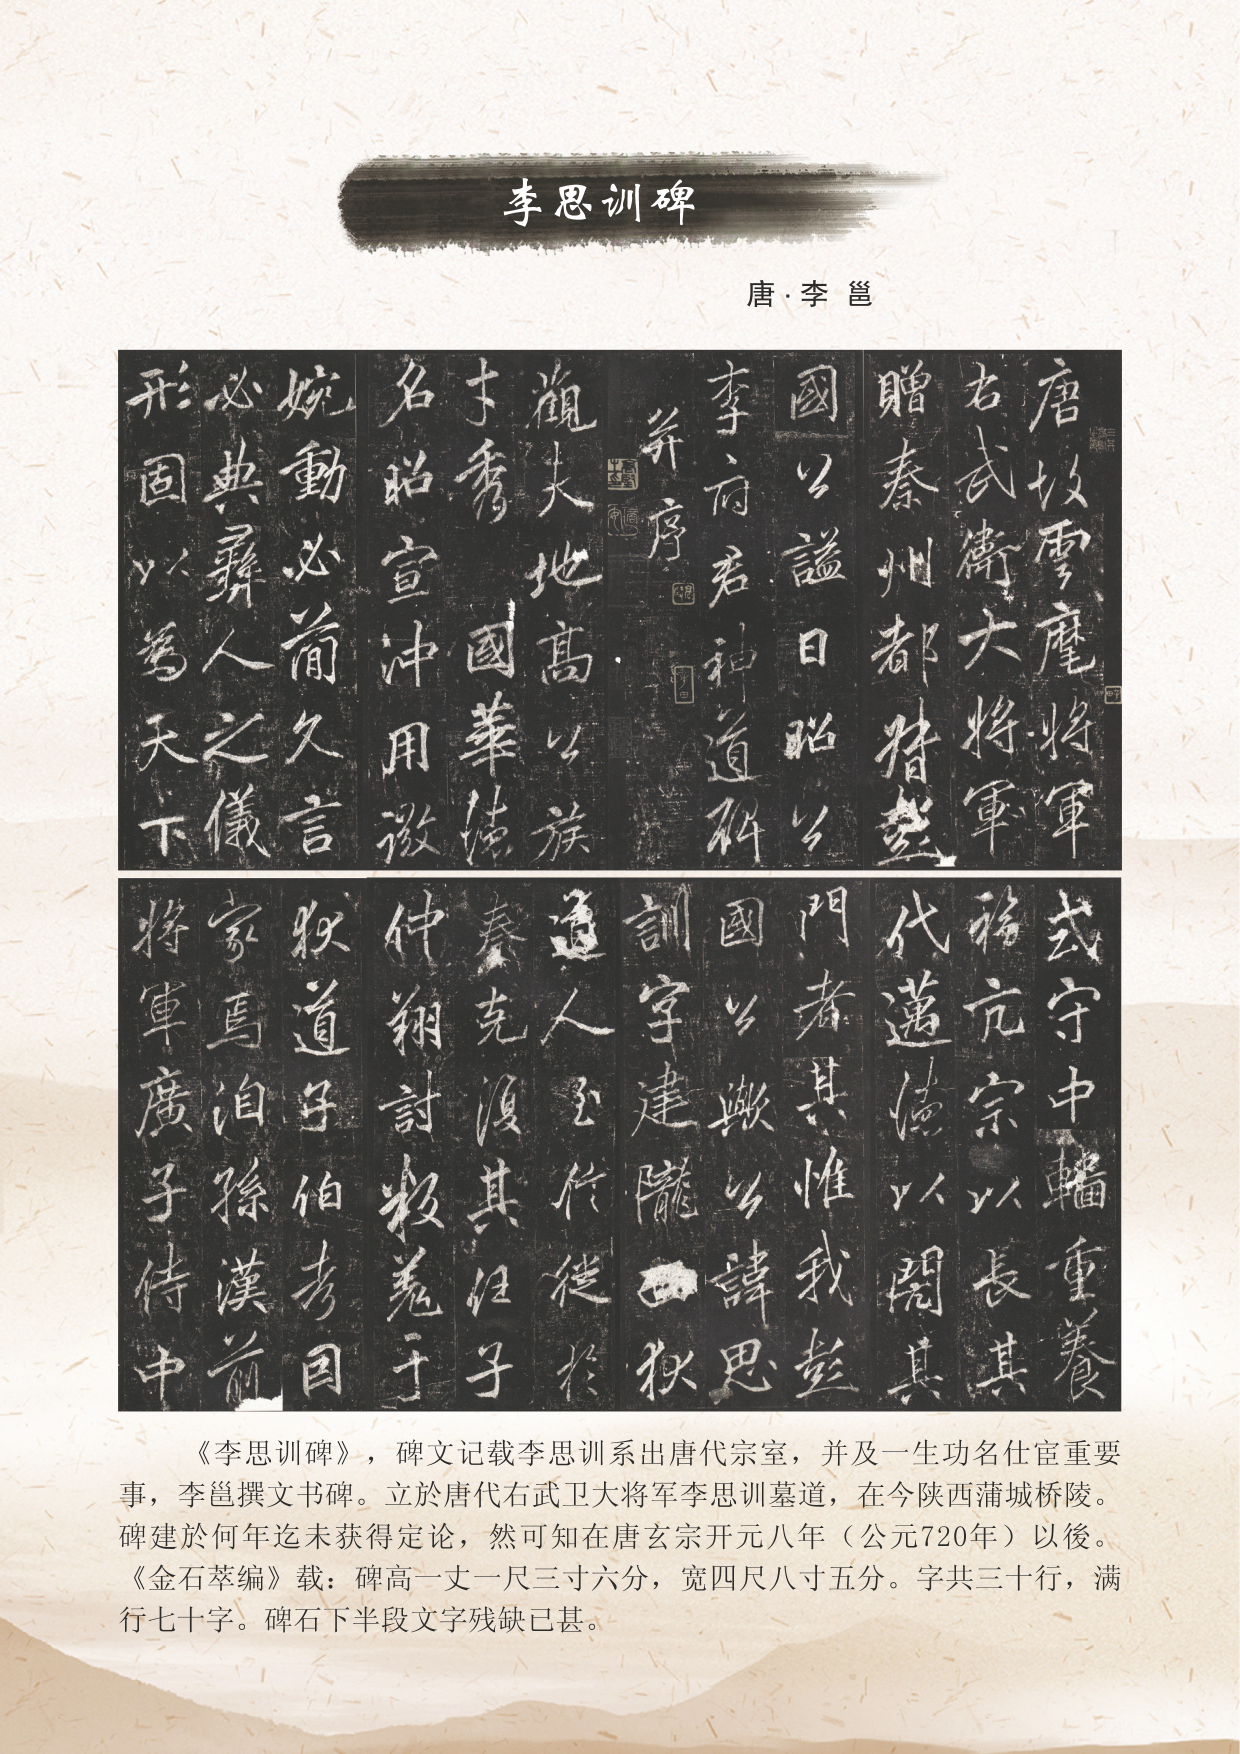 李思训碑
唐·李 邕
唐故雲麾將軍
右武衛大將軍
贈秦州都督彭
國公謚曰昭公
李府君神道碑
并序
觀夫地高公族
才秀國華德
名昭宣沖用微
婉動必簡久言
必典彝人之儀
形固以為天下
式守中轓重養
福亢宗以長其
代邁德以閱其
門者其惟我彭
國公歟公諱思
訓字建隴狄
道人至信徙於
秦克復其任子
仲翔討叛羌于
狄道子伯考因
家焉洎孫漢前
將軍廣子侍中
《李思训碑》，碑文记载李思训系出唐代宗室，并及一生功名仕宦重要
事，李邕撰文书碑。立於唐代右武卫大将军李思训墓道，在今陕西蒲城桥陵。
碑建於何年迄未获得定论，然可知在唐玄宗开元八年（公元720年）以後。
《金石萃编》载：碑高一丈一尺三寸六分，宽四尺八寸五分。字共三十行，满
行七十字。碑石下半段文字残缺已甚。